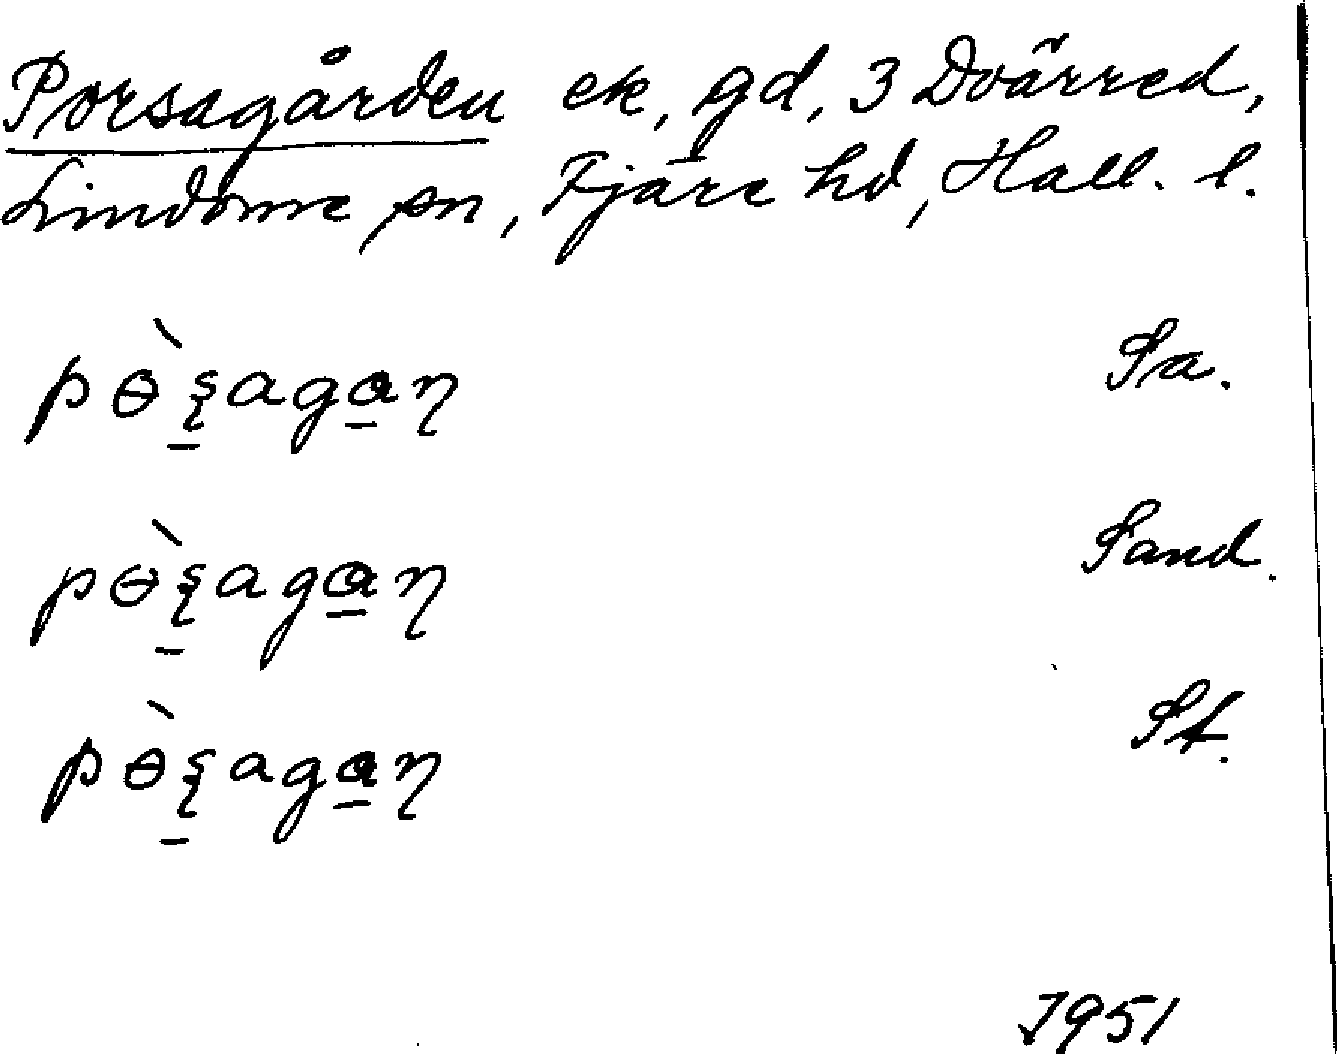 Porsagården ek, gd, 3 Dvärred,
Lindome sn, Fjäre hd, Hall. l.
pɵ̀ʂagan̠ Sa.
pɵ̀ʂagan̠ Sand.
pɵ̀ʂagan̠ St.
1951